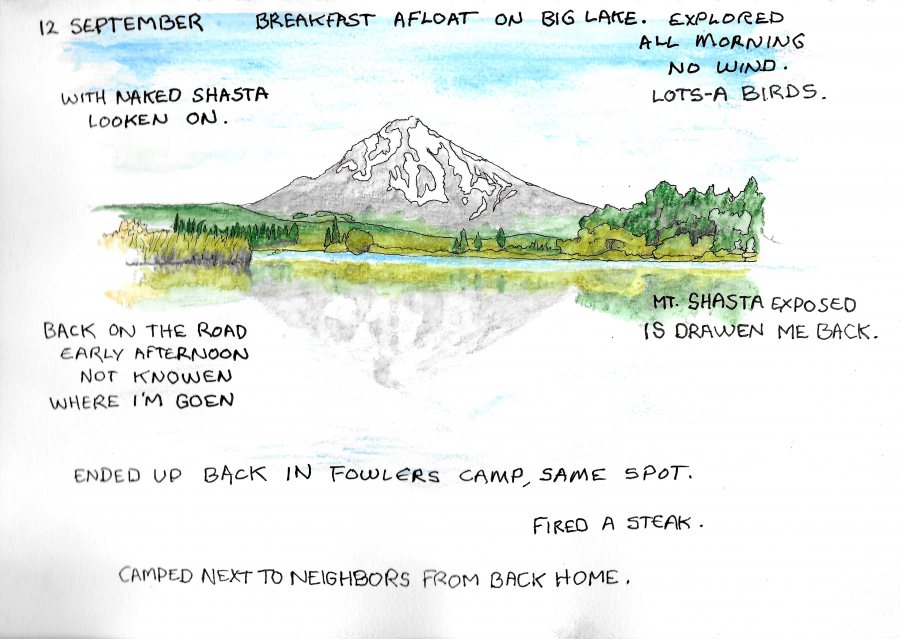 12 SEPTEMBER BREAKFAST AFLOAT ON BIG LAKE. EXPLORED
ALL MORNING
NO WIND.
LOTS-A BIRDS.
WITH NAKED SHASTA
LOOKEN ON.
MT. SHASTA EXPOSED
IS DRAWEN ME BACK.
BACK ON THE ROAD
EARLY AFTERNOON
NOT KNOWEN
WHERE I'M GOEN
ENDED UP BACK IN FOWLERS CAMP, SAME SPOT.
FIRED A STEAK.
CAMPED NEXT TO NEIGHBORS FROM BACK HOME.